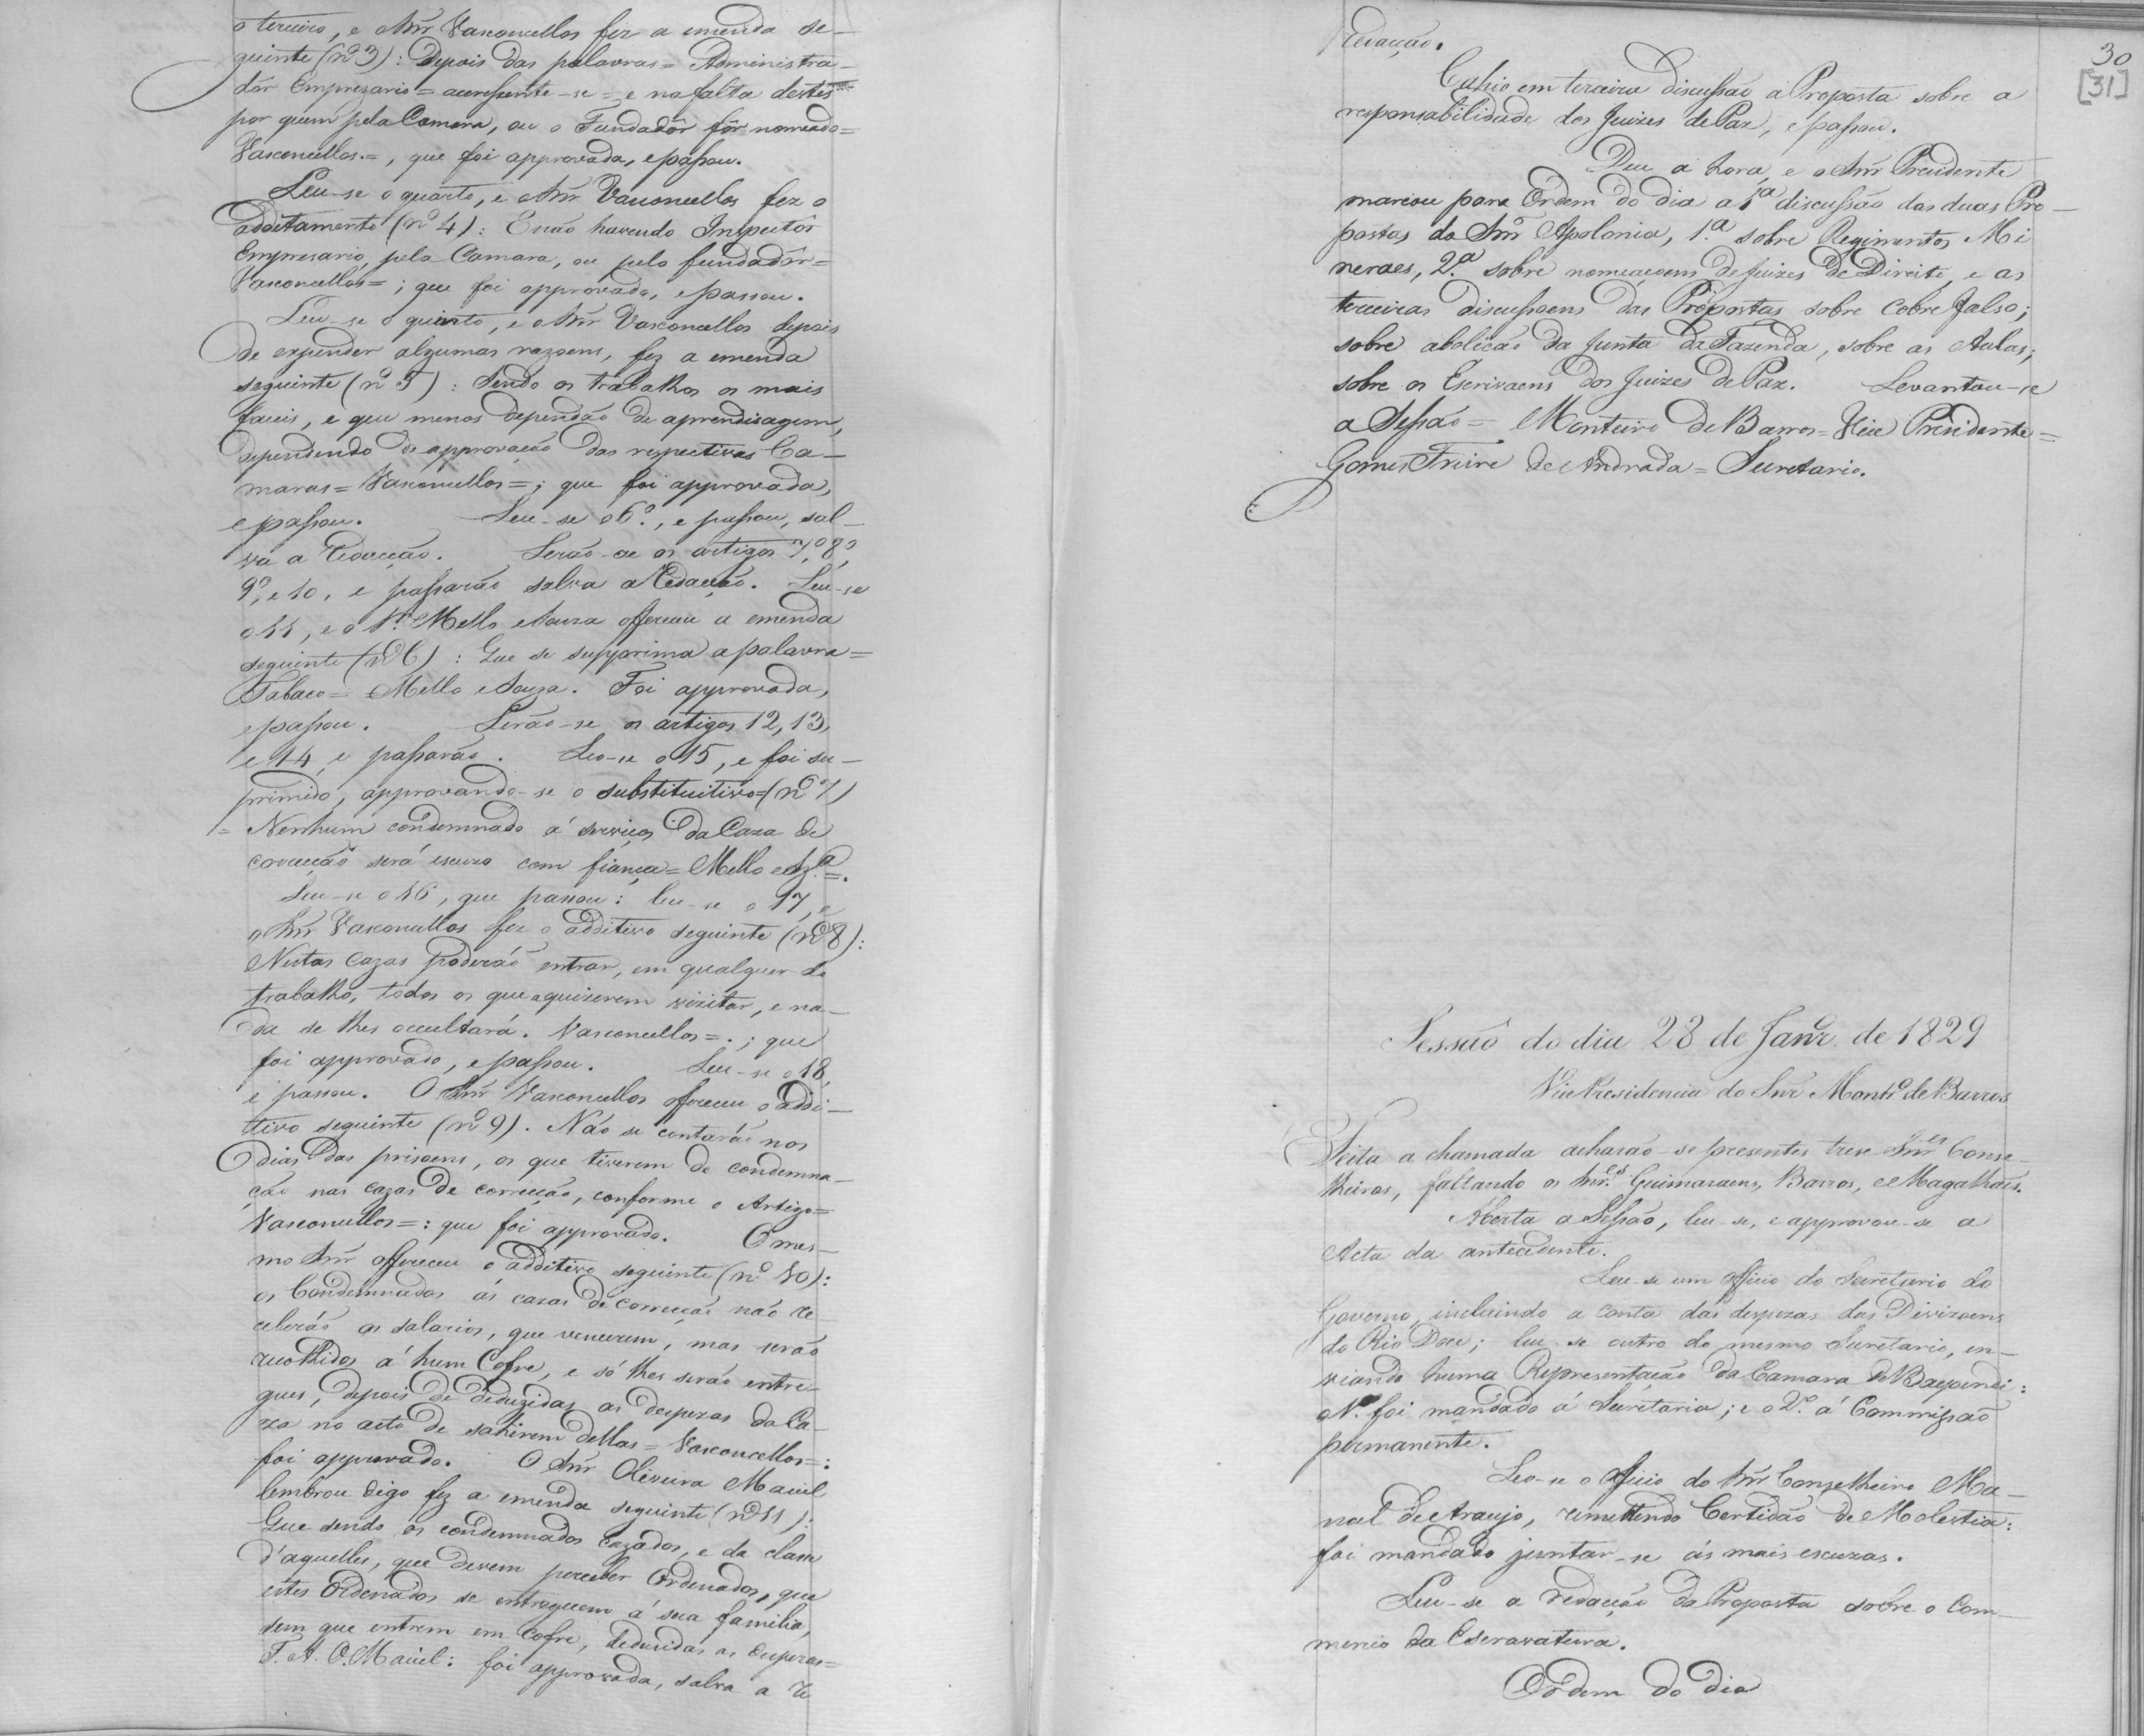 o terceiro, e o Snr̃ Vasconcellos fez a emenda se-
guinte (nº 3): Depois das palavras = Administra-
dôr Emprezario = acressente-se = e na falta destes
por quem pela Camara, ou o Fundadôr fôr nomeado =
Vasconcellos =, que foi approvada, e passou.
Leu-se o quarto, e o Snr̃ Vasconcellos fez o
additamento (nº 4): E não havendo Inspectôr
Empresario, pela Camara, ou pelo fundadôr =
Vasconcellos =; que foi approvado, e passou.
Leu-se o quinto, e o Snr̃ Vasconcellos depois
de expender algumas razoens, fez a emenda
seguinte (nº 5): Sendo os trabalhos os mais
faceis, e que menos dependão de aprendisagem,
dependendo de approvação das respectivas Ca-
maras = Vasconcellos =; que foi approvada,
e passou. Leu-se o 6º, e passou, sal-
va a redacção. Lerão-se os artigos 7º, 8º,
9º, e 10, e passarão salva a redacção. Leu-se
o 11, e o Sr. Mello e Souza offereceu a emenda
seguinte (nº 6): Que se supprima a palavra =
Tabaco = Mello e Souza. Foi approvada,
e passou. Lerão-se os artigos 12, 13,
e 14, e passarão. Leo-se o 15, e foi su-
primido, approvando-se o substituitivo = (nº 7)
= Nenhum condemnado á serviços da Caza de
correcção será escuzo com fiança = Mello e Sz.ª =.
Leu-se o 16, que passou: leu-se o 17, e
o Snr̃ Vasconcellos fez o additivo seguinte (nº 8):
Nestas Cazas poderáõ entrar, em qualquer de
trabalho, todos os que a quizerem vizitar, e na-
da se lhes occultará. Vasconcellos =.; que
foi approvado, e passou. Leu-se o 18,
e passou. O Snr̃ Vasconcellos offereceu o addi-
tivo seguinte (nº 9). Não se contarão nos
dias das prisoens, os que tiverem de condemna-
ção nas cazas de correcção, conforme o Artigo =
Vasconcellos =: que foi approvado. O mes-
mo Snr̃ offereceu o additivo seguinte (nº 10):
os Condemnados ás cazas de correcção não re-
ceberáõ os salarios, que vencerem, mas serão
recolhidos á hum Cofre, e só lhes serão entre-
gues, depois de deduzidas as despezas da Ca-
za no acto de sahirem dellas = Vasconcellos =:
foi approvado. O Snr̃ Oliveira Maciel
lembrou digo fez a emenda seguinte (nº 11):
Que sendo os condemnados Cazados, e da classe
d'aquelles, que devem perceber Ordenados, que
estes Ordenados se entreguem á sua familia,
sem que entrem em Cofre, deduzidas as despezas =
F. A. O. Maciel: foi approvada, salva a re
30
[31]
redacção.
Cahio em terceira discussão a Proposta sobre a
responsabilidade dos Juizes de Paz, e passou.
Deu a hora, e o Snr̃ Presidente
marcou para Ordem do dia a 1ª discussão das duas Pro-
postas do Snr̃ Apolonia, 1.ª sobre Regimentos Mi
neraes, 2.ª sobre nomeacoens de Juizes de Direito, e as
terceiras discussoens das Propostas sobre Cobre falso;
sobre abolicão da Junta da Fazenda, sobre as Aulas;
sobre os Escrivaens dos Juizes de Paz. Levantou-se
a Sessão = Monteiro de Barros = Vice Presidente =
Gomes Freire de Andrada = Secretario.
Sessão do dia 28 de Janr.º de 1829
Vice Presidencia do Snr Montr.º de Barros
Feita a chamada acharão-se presentes treze Snr.es Conse-
lheiros, faltando os Snr.es Guimaraens, Barros, e Magalhães.
Aberta a Sessão, leu-se, e approvou-se a
Acta da antecedente.
Leu-se um officio do Secretario do
Governo, incluindo a conta das despezas das Divizoens
do Rio Doce; leu-se outro do mesmo Secretario, en-
viando huma Representação da Camara de Baependi:
o 1º. foi mandado á Secretaria; e o 2º. á Commissão
permanente.
Leo-se o officio do Snr̃ Conselheiro Ma-
noel de Araujo, remettendo Certidão de Molestia:
foi mandado juntar-se ás mais escuzas.
Leu-se a redacção da Proposta sobre o Com-
mercio da Escravatura.
Ordem do dia